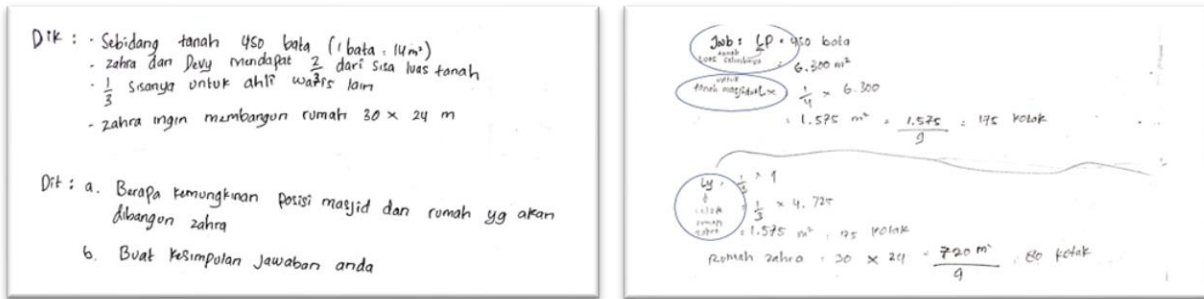 Dik : · Sebidang tanah 450 bata (1 bata : 14 m²)
- Zahra dan Devy mendapat 2/3 dari sisa luas tanah
- 1/3 sisanya untuk ahli waris lain
- Zahra ingin membangun rumah 30 × 24 m
Dit : a. Berapa kemungkinan posisi masjid dan rumah yg akan
dibangun zahra
b. Buat kesimpulan jawaban anda
Jwb : LP = 450 bata
tanah
luas seluruhnya = 6.300 m²
untuk
tanah masjid 1/4 × 6.300
= 1.575 m² = 1.575/9 = 175 kotak
Ly = 1/3 ×
1/3 × 4.725
= 1.575 m² : 175 kotak
Rumah zahra : 30 × 24 = 720 m²/9 = 80 kotak